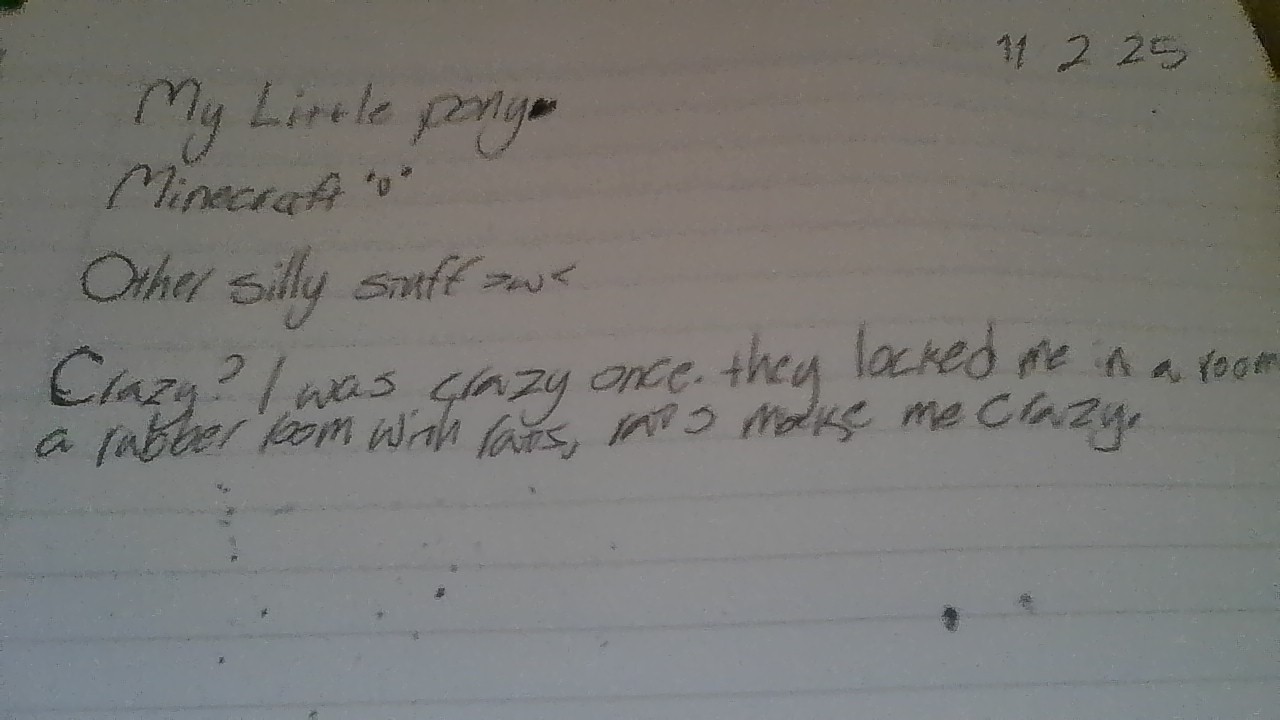 11 2 25
My Little pony
Minecraft "0"
Other silly stuff >w<
Crazy? I was crazy once. they locked me in a room
a rubber room with rats, rats make me Crazy.